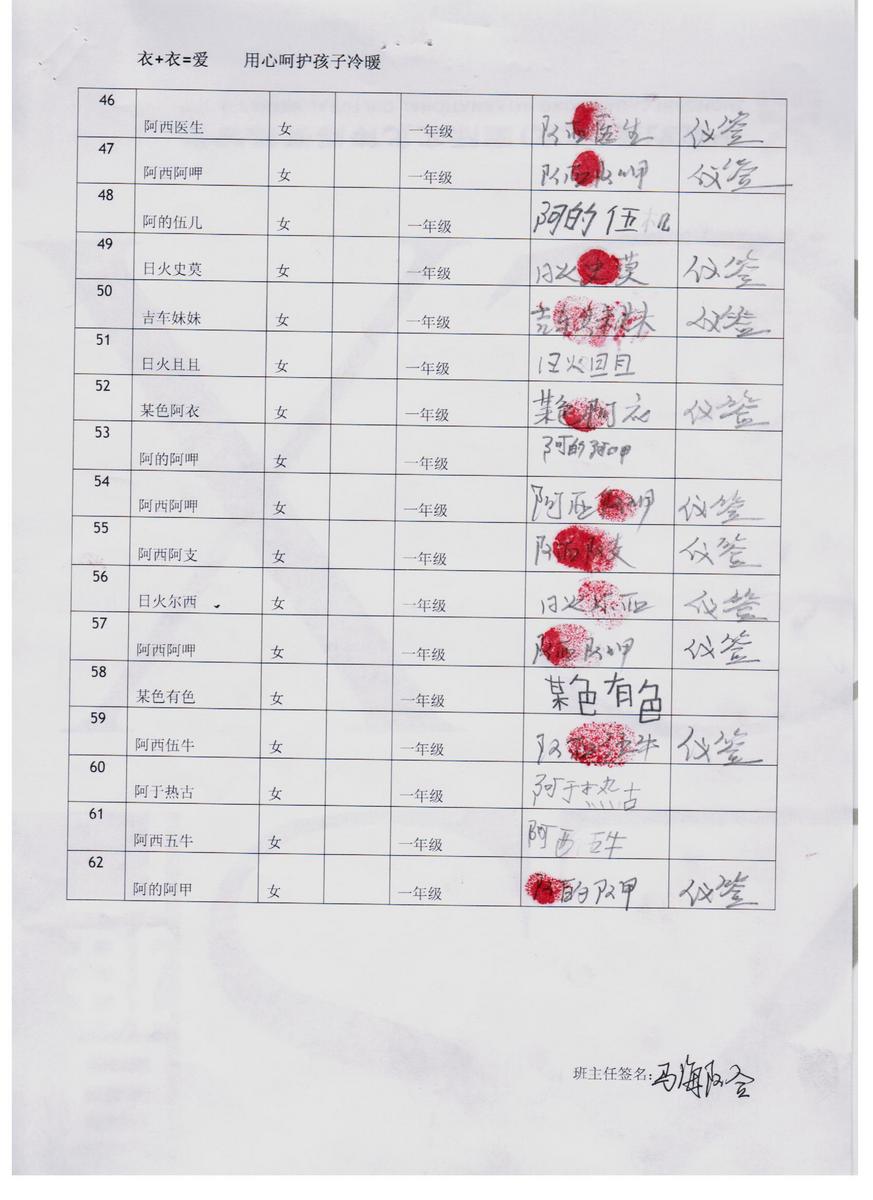 衣+衣=爱 用心呵护孩子冷暖
46 阿西医生 女 一年级 阿西医生 代签
47 阿西阿呷 女 一年级 阿西阿呷 代签
48 阿的伍几 女 一年级 阿的伍机几
49 日火史莫 女 一年级 日火史莫 代签
50 吉车妹妹 女 一年级 吉车妹妹 代签
51 日火且且 女 一年级 日火目目
52 某色阿衣 女 一年级 某色阿衣 代签
53 阿的阿呷 女 一年级 阿的阿呷
54 阿西阿呷 女 一年级 阿西阿呷 代签
55 阿西阿支 女 一年级 阿西阿支 代签
56 日火尔西 女 一年级 日火尔西 代签
57 阿西阿呷 女 一年级 阿西阿呷 代签
58 某色有色 女 一年级 某色有色
59 阿西伍牛 女 一年级 阿西伍牛 代签
60 阿于热古 女 一年级 阿于热古
61 阿西五牛 女 一年级 阿西五牛
62 阿的阿甲 女 一年级 阿的阿甲 代签
班主任签名:马海阿